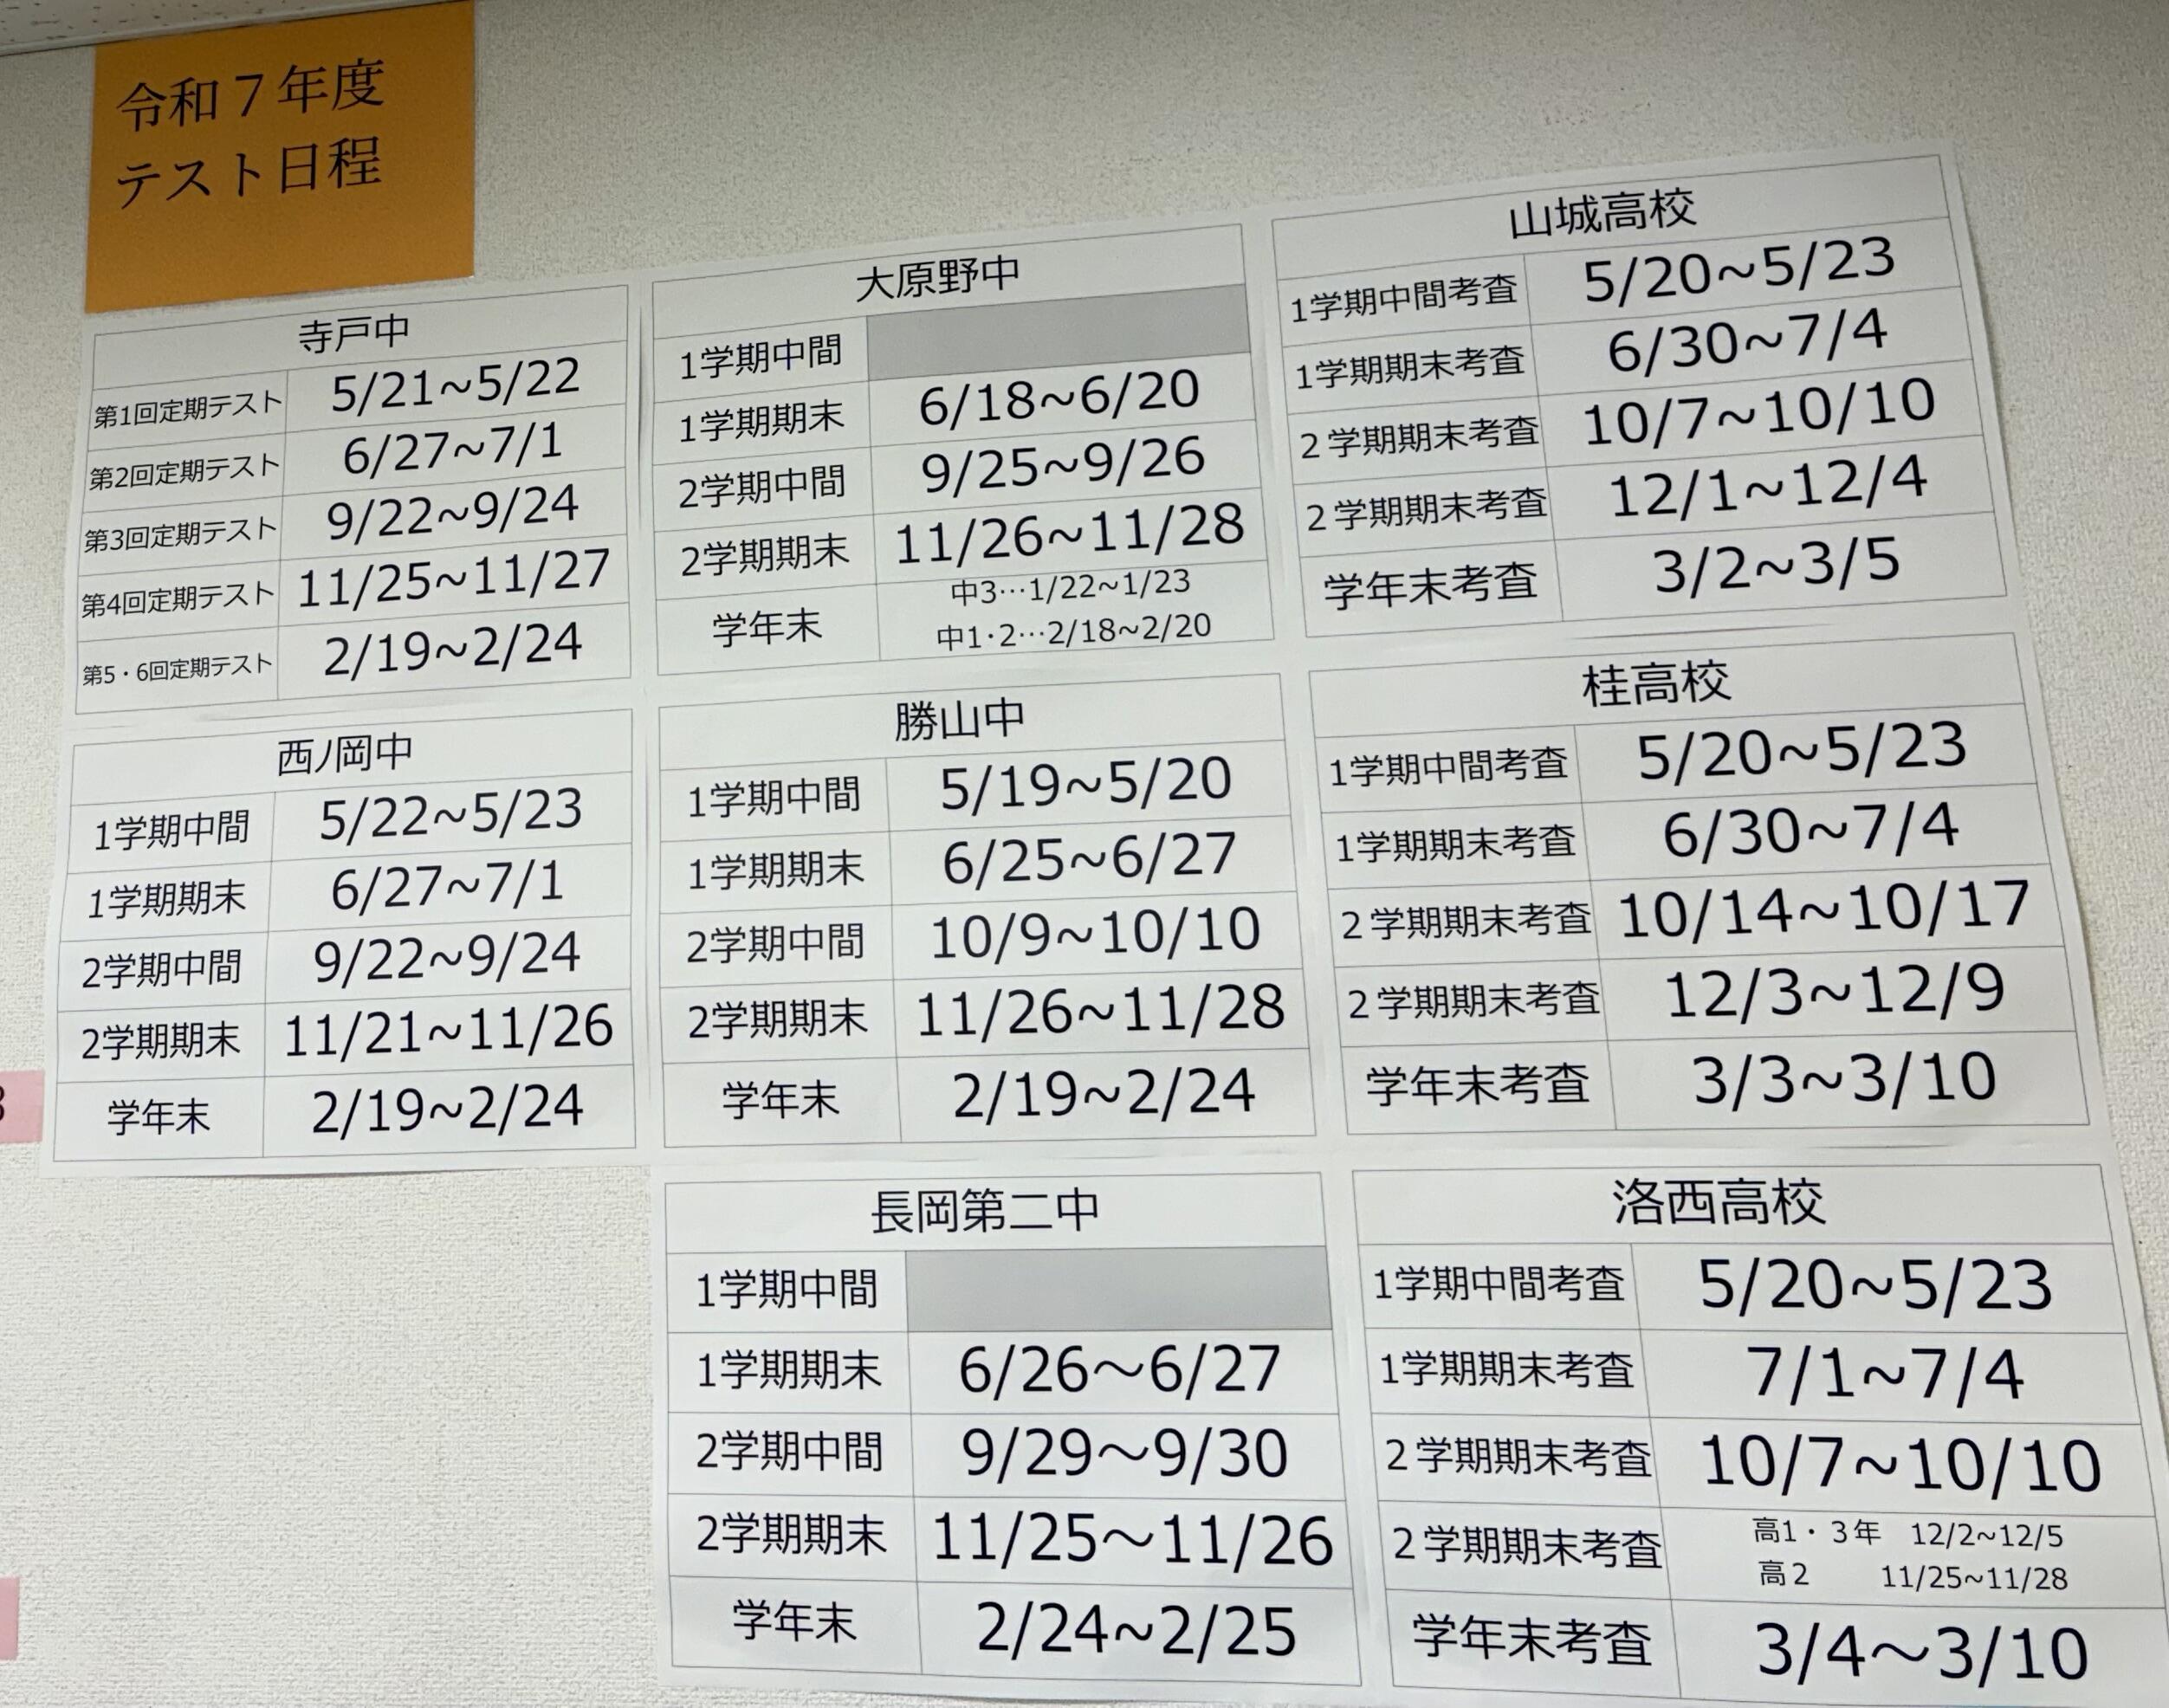 令和７年度
テスト日程
寺戸中
第1回定期テスト 5/21~5/22
第2回定期テスト 6/27~7/1
第3回定期テスト 9/22~9/24
第4回定期テスト 11/25~11/27
第5・6回定期テスト 2/19~2/24
大原野中
1学期中間
1学期期末 6/18~6/20
2学期中間 9/25~9/26
2学期期末 11/26~11/28
学年末 中3…1/22~1/23
中1・2…2/18~2/20
山城高校
1学期中間考査 5/20~5/23
1学期期末考査 6/30~7/4
２学期期末考査 10/7~10/10
２学期期末考査 12/1~12/4
学年末考査 3/2~3/5
西ノ岡中
1学期中間 5/22~5/23
1学期期末 6/27~7/1
2学期中間 9/22~9/24
2学期期末 11/21~11/26
学年末 2/19~2/24
勝山中
1学期中間 5/19~5/20
1学期期末 6/25~6/27
2学期中間 10/9~10/10
2学期期末 11/26~11/28
学年末 2/19~2/24
桂高校
1学期中間考査 5/20~5/23
1学期期末考査 6/30~7/4
２学期期末考査 10/14~10/17
２学期期末考査 12/3~12/9
学年末考査 3/3~3/10
長岡第二中
1学期中間
1学期期末 6/26～6/27
2学期中間 9/29～9/30
2学期期末 11/25～11/26
学年末 2/24~2/25
洛西高校
1学期中間考査 5/20~5/23
1学期期末考査 7/1~7/4
２学期期末考査 10/7~10/10
２学期期末考査 高1・３年 12/2~12/5
高２ 11/25~11/28
学年末考査 3/4～3/10